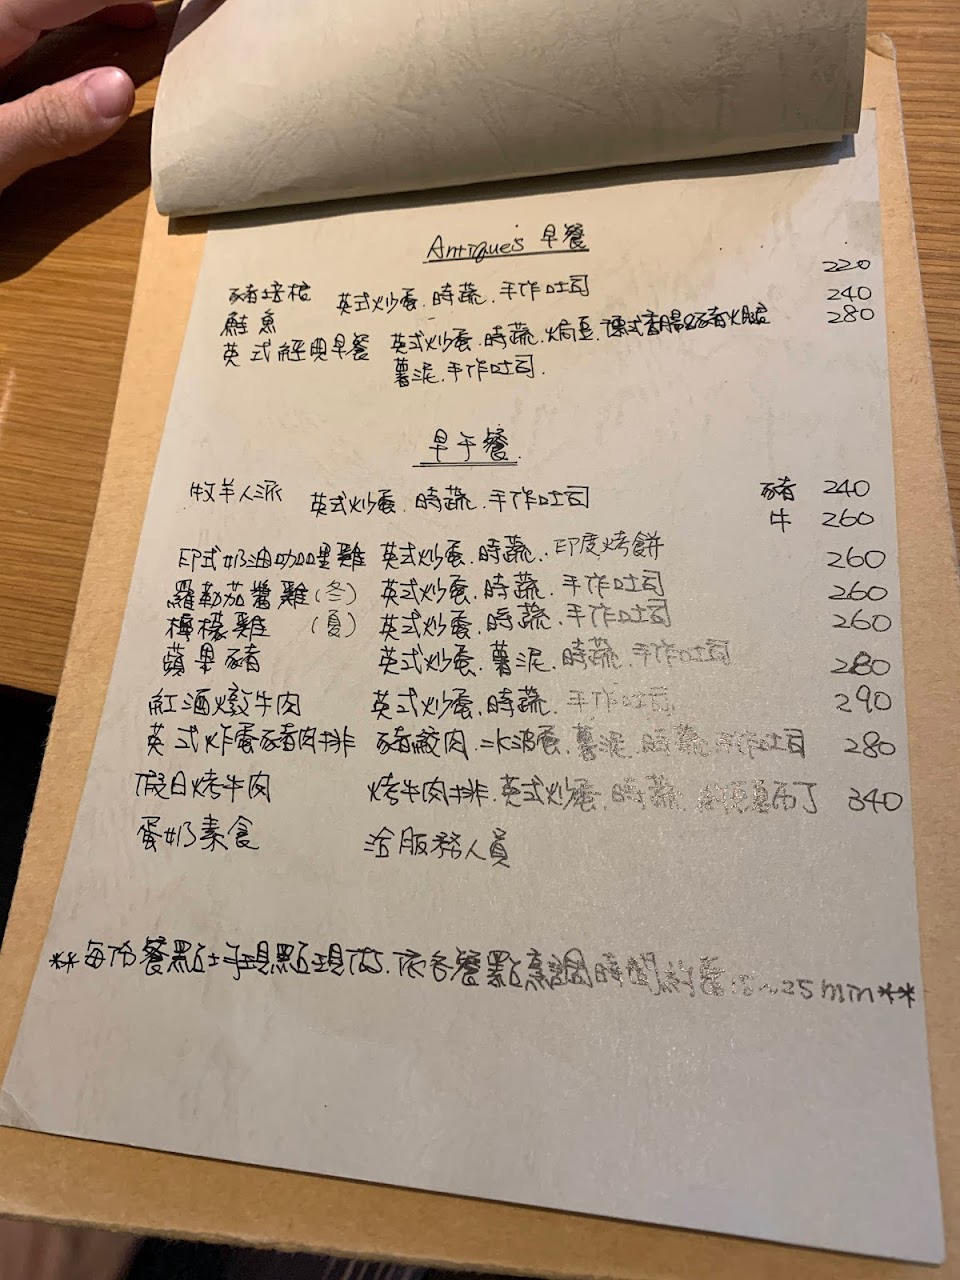 Antique's 早餐
豬培根 英式炒蛋.時蔬.手作吐司 220
鮭魚 240
英式經典早餐 英式炒蛋.時蔬.焗豆.德式香腸 豬 火腿 280
薯泥.手作吐司.
早午餐
牧羊人派 英式炒蛋.時蔬.手作吐司 豬 240
牛 260
印式奶油咖哩雞 英式炒蛋.時蔬.印度烤餅 260
羅勒茄醬雞(冬) 英式炒蛋.時蔬.手作吐司 260
檸檬雞 (夏) 英式炒蛋.時蔬.手作吐司 260
蘋果豬 英式炒蛋.薯泥.時蔬.手作吐司 280
紅酒燉牛肉 英式炒蛋.時蔬.手作吐司 290
英式炸蛋豬肉排 豬絞肉.水波蛋.薯泥.時蔬.手作吐司 280
假日烤牛肉 烤牛肉排.英式炒蛋.時蔬.布丁 340
蛋奶素食 洽服務人員
**每份餐點 現點現做.依各餐點烹調時間約需15~25min**